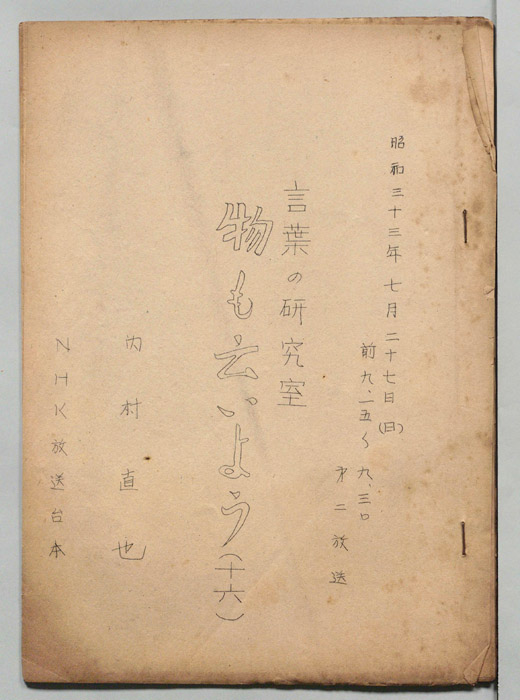 昭和三十三年七月二十七日(日)
前九、一五〜九、三〇
才二放送
言葉の研究室
物も云いよう(十六)
内村直也
NHK放送台本